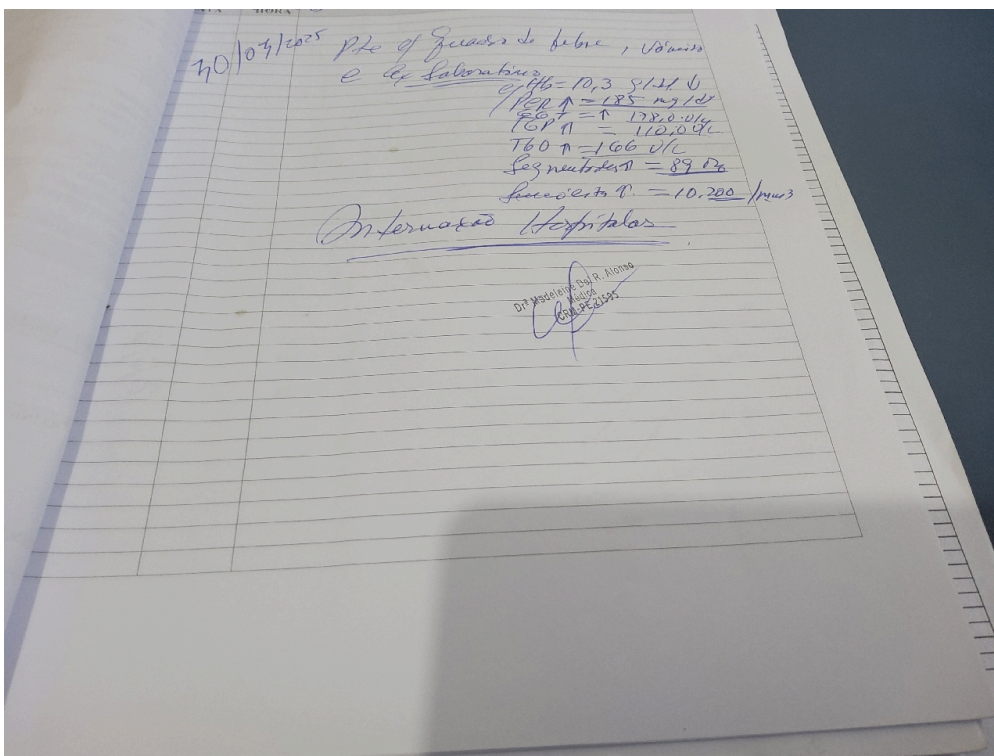 HORA
30/07/2025 Pte c/ Quadro de febre, vômitos
e Ex Laboratório
c/ Hb = 10,3 g/dl ↓
PCR ↑ = 185 mg/dl
GGT = ↑ 178,0 U/L
TGP ↑ = 110,0 U/L
TGO ↑ = 166 U/L
Segmentados ↑ = 89 %
Leucócitos ↑ = 10.200 /mm3
Internação Hospitalar
Drª Madeleine Del R. Alonso
Médica
CRM-PE 21595